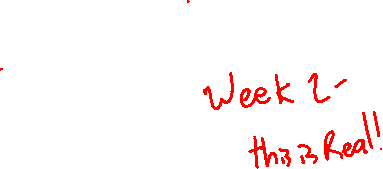 Week 2-
this is Real!!